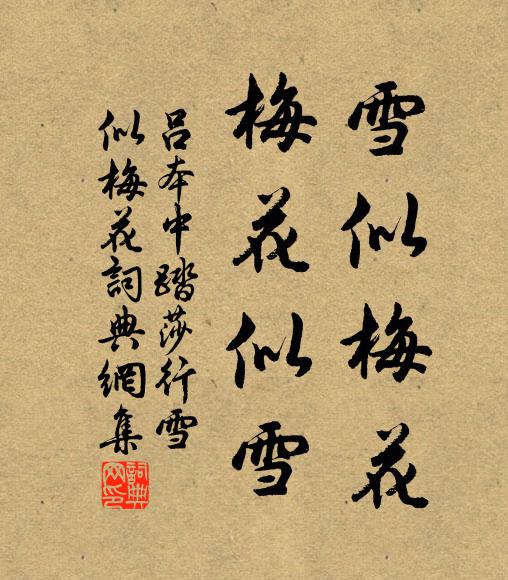 雪似梅花
梅花似雪
吕本中踏莎行雪
似梅花詞典網集
詞典網印